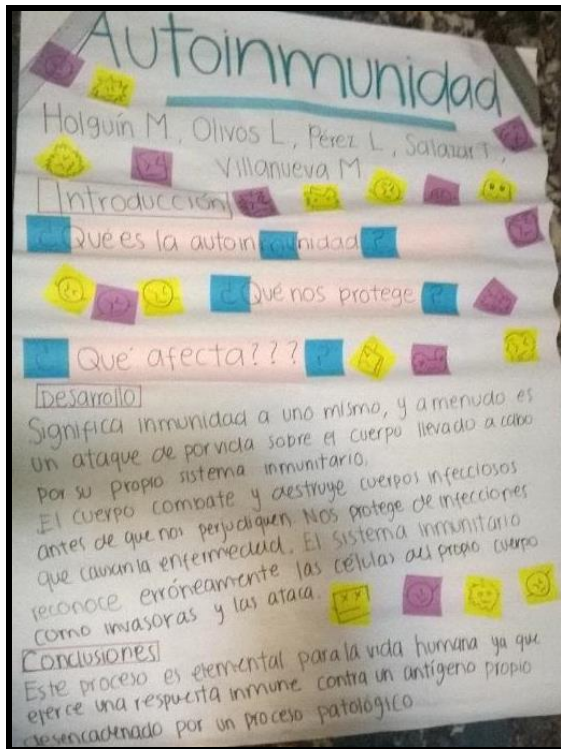 Autoinmunidad
Holguín M, Olivos L, Pérez L, Salazar T,
Villanueva M.
Introducción
¿Qué es la autoinmunidad?
¿Qué nos protege?
¿Qué afecta????
Desarrollo
Significa inmunidad a uno mismo, y a menudo es
un ataque de por vida sobre el cuerpo llevado a cabo
por su propio sistema inmunitario.
El cuerpo combate y destruye cuerpos infecciosos
antes de que nos perjudiquen. Nos protege de infecciones
que causan la enfermedad. El sistema inmunitario
reconoce erróneamente las células del propio cuerpo
como invasoras y las ataca.
Conclusiones
Este proceso es elemental para la vida humana ya que
ejerce una respuesta inmune contra un antígeno propio
desencadenado por un proceso patológico